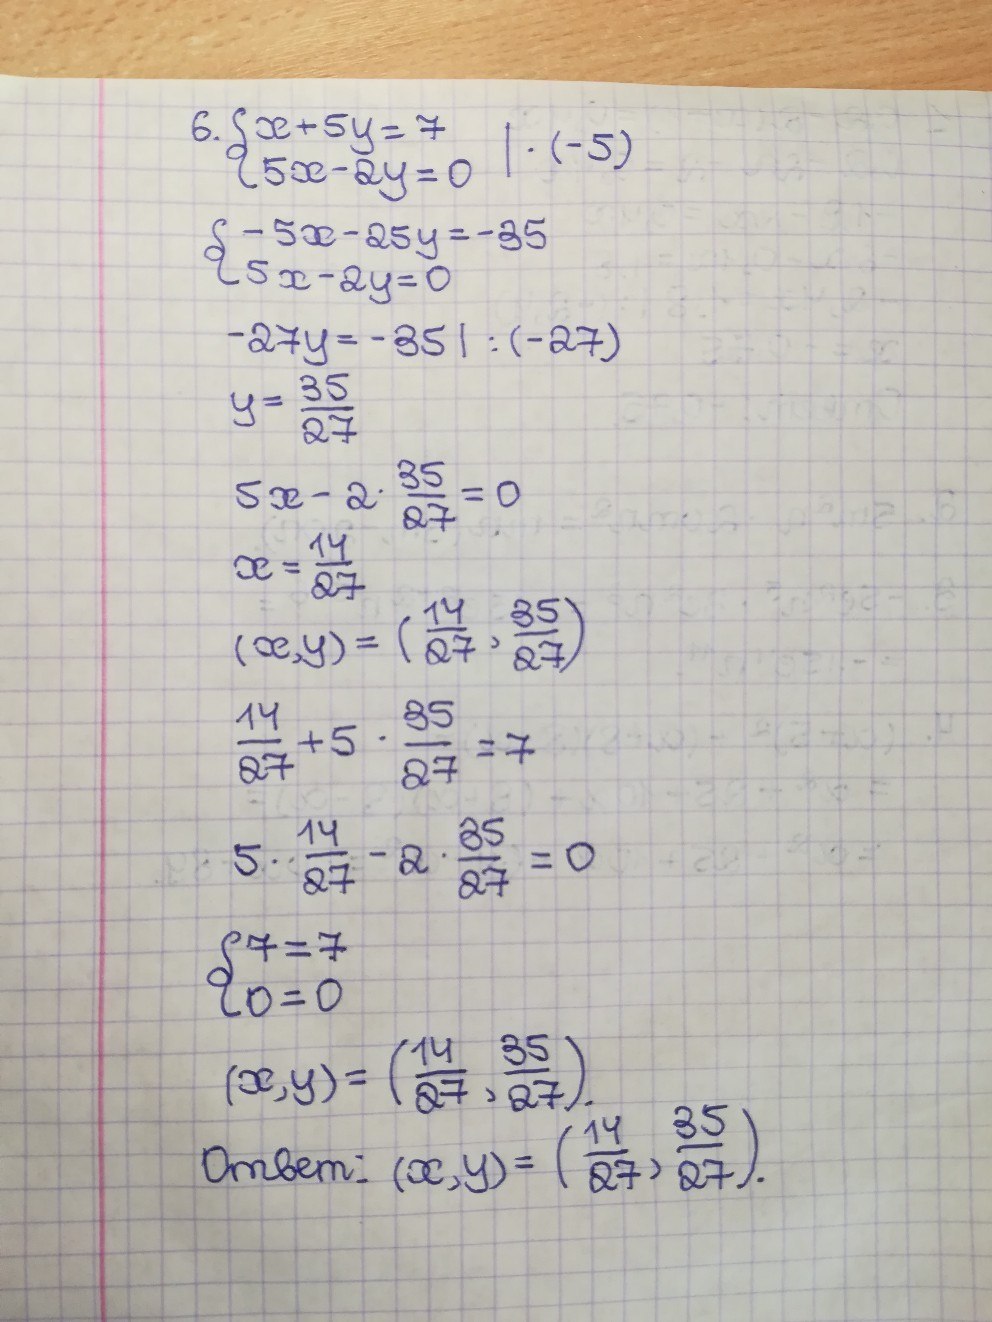 6. { x + 5y = 7 | · (-5)
{ 5x - 2y = 0
{ - 5x - 25y = -35
{ 5x - 2y = 0
-27y = -35 | : (-27)
y = 35/27
5x - 2 · 35/27 = 0
x = 14/27
(x, y) = (14/27, 35/27)
14/27 + 5 · 35/27 = 7
5 · 14/27 - 2 · 35/27 = 0
{ 7 = 7
{ 0 = 0
(x, y) = (14/27, 35/27).
Ответ: (x, y) = (14/27, 35/27).